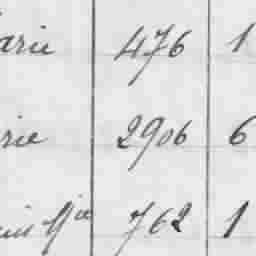 arie 476 1
rie 2906 6
762 1